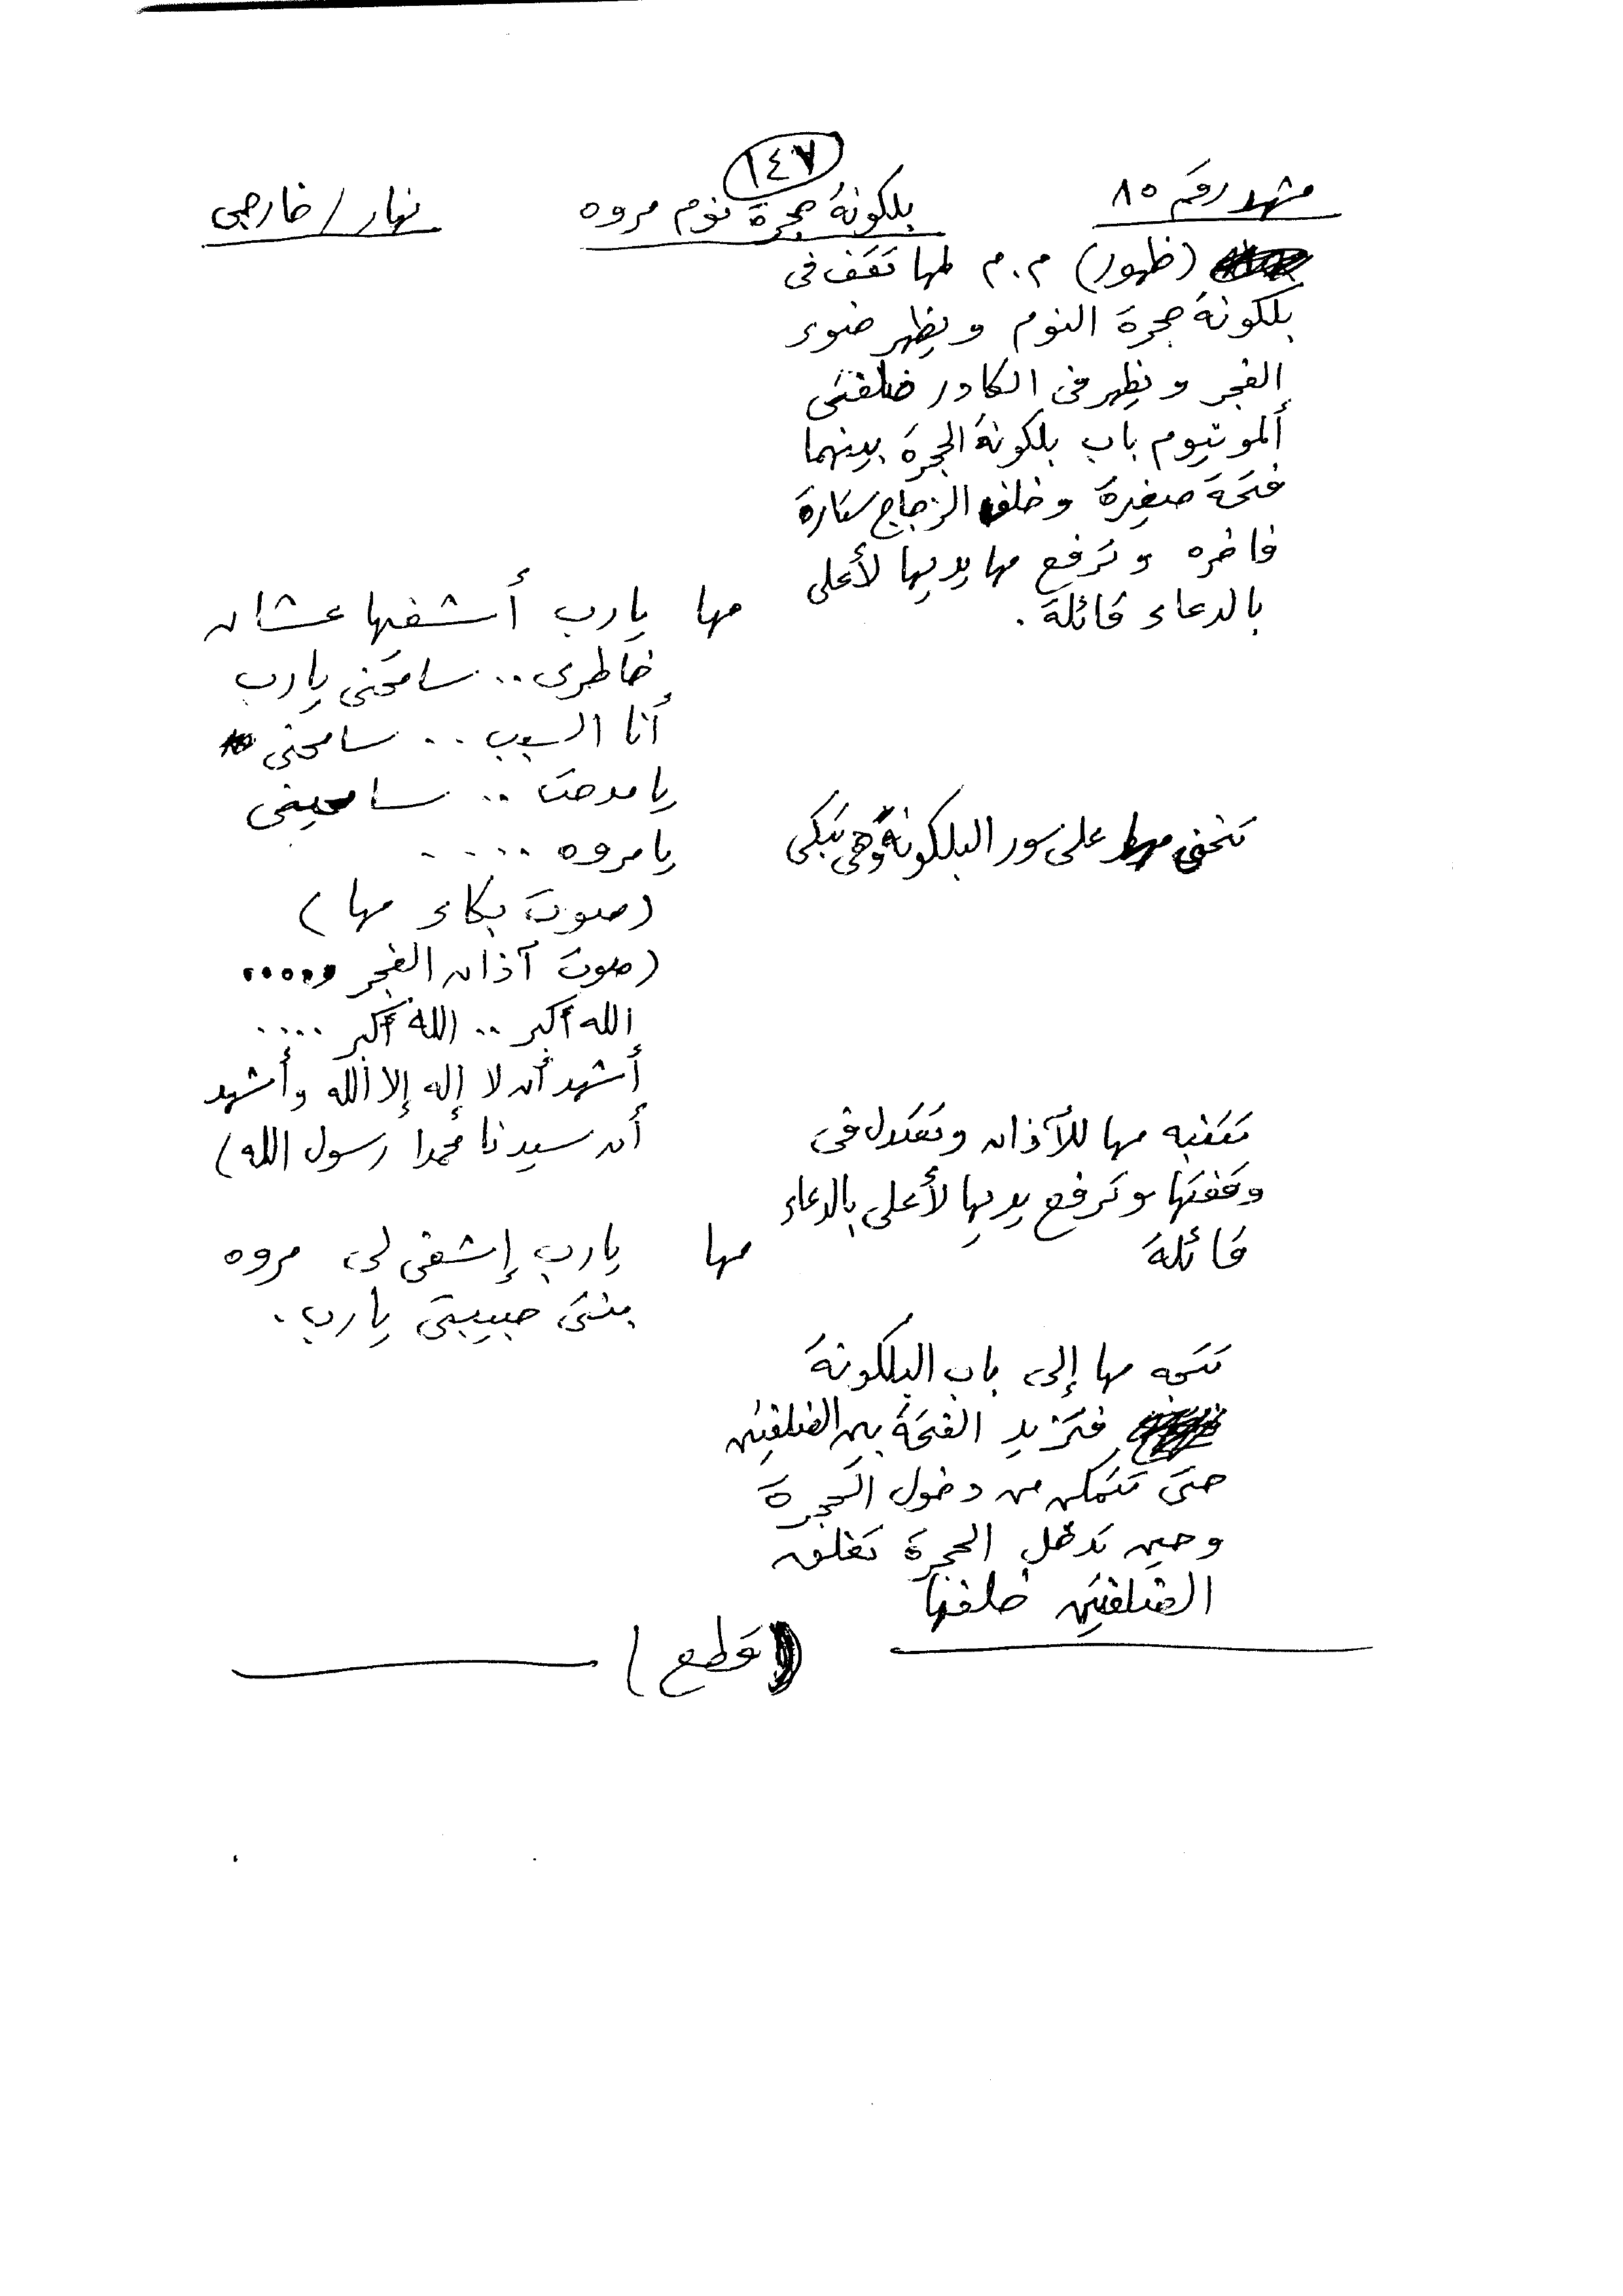 ١٤٧
مشهد رقم ٨٥ بلكونة حجرة نوم مروه نهار / خارجى
(ظهور) م.م لمها تقف فى
بلكونة حجرة النوم ويظهر ضوء
الفجر ويظهر فى الكادر ضلفتى
ألموتيوم باب بلكونة الحجرة بينهما
فتحة صغيرة وخلف الزجاج ستارة
فاخره وترفع مها يديها لأعلى
بالدعاء قائلة .
مها يارب أشفيها عشان
خاطرى .. سامحنى يارب
أنا السبب .. سامحنى
يا مدحت .. سامحينى
يا مروه ....
تنحنى مها على سور البلكونة وهى تبكى
(صوت بكاء مها)
(صوت آذان الفجر .....
الله أكبر .. الله أكبر ....
أشهد أن لا إله إلا الله وأشهد
أن سيدنا محمدا رسول الله)
تتنبه مها للآذان وتعتدل فى
وقفتها وترفع يديها لأعلى بالدعاء
قائلة
مها يارب إشفى لى مروه
بنتى حبيبتى يارب .
تتجه مها إلى باب البلكونة
فتزيد الفتحة بين الضلفتين
حتى تتمكن من دخول الحجرة
وحين تدخل الحجرة تغلق
الضلفتين خلفها
(قطع)